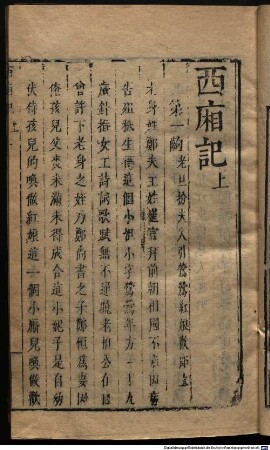 西廂記上
第一齣 老旦扮夫人引鶯鶯紅娘歡郎上
老身姓鄭夫主姓崔官拜前朝相國不幸因病
告殂秪生得這個小姐小字鶯鶯年方一十九
歲針指女工詩詞歌賦無不通曉老相公在日
曾許下老身之姪乃鄭尚書之子鄭恒爲妻因
俺孩兒父喪未滿未得成合這小妮子是自幼
伏侍孩兒的喚做紅娘這一個小廝兒喚做歡